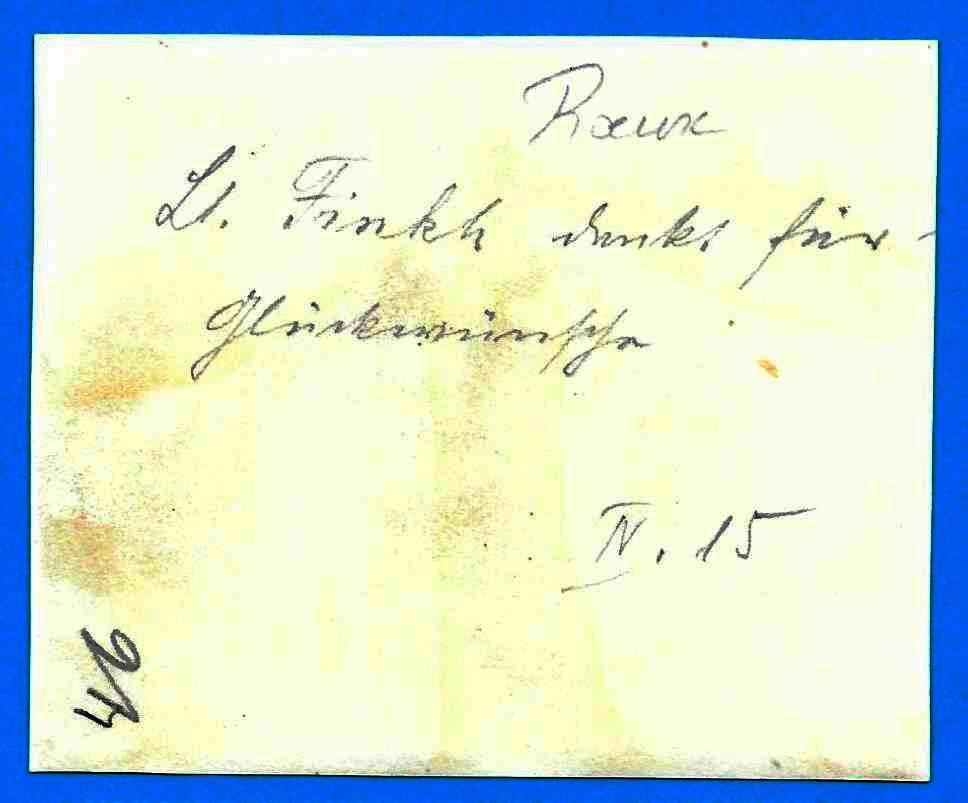 Rœux
Lt. Finkh dankt für -
Glückwünsche
IV. 15